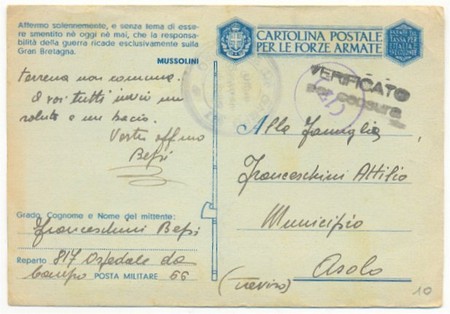 Affermo solennemente, e senza tema di esse-
re smentito nè oggi nè mai, che la responsa-
bilità della guerra ricade esclusivamente sulla
Gran Bretagna.
MUSSOLINI
terrena non comuna.
A voi tutti invii un
saluto e un bacio.
Vostro aff.mo
Bepi
Grado, Cognome e Nome del mittente:
Franceschini Bepi
Reparto 817 Ospedale da
Campo POSTA MILITARE 66
CARTOLINA POSTALE
PER LE FORZE ARMATE
VERIFICATO
PER CENSURA
Alla Famiglia
Franceschini Attilio
Municipio
Asolo
(Treviso)
10